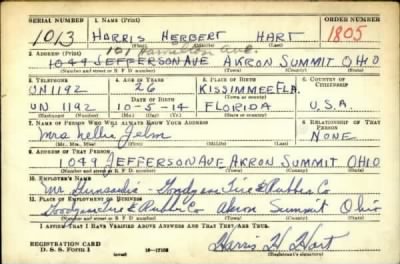 SERIAL NUMBER 1. NAME (Print) ORDER NUMBER
1013 HARRIS HERBERT HART 1805
(First) (Middle) (Last)
2. ADDRESS (Print) 101 Hamilton Ave.
1049 JEFFERSON AVE AKRON SUMMIT OHIO
(Number and street or R. F. D. number) (Town) (County) (State)
3. TELEPHONE 4. AGE IN YEARS 5. PLACE OF BIRTH 6. COUNTRY OF CITIZENSHIP
UN 1192 26 KISSIMMEE FLA.
DATE OF BIRTH (Town or county)
UN 1192 10-5-14 FLORIDA U.S.A.
(Exchange) (Number) (Mo.) (Day) (Yr.) (State or country)
7. NAME OF PERSON WHO WILL ALWAYS KNOW YOUR ADDRESS 8. RELATIONSHIP OF THAT PERSON
Mrs Nellie NONE
(Mr., Mrs., Miss) (First) (Middle) (Last)
9. ADDRESS OF THAT PERSON
1049 JEFFERSON AVE AKRON SUMMIT OHIO
(Number and street or R. F. D. number) (Town) (County) (State)
10. EMPLOYER'S NAME
Mr - Goodyear Tire & Rubber Co
11. PLACE OF EMPLOYMENT OR BUSINESS
Goodyear Tire & Rubber Co Akron Summit Ohio
(Number and street or R. F. D. number) (Town) (County) (State)
I AFFIRM THAT I HAVE VERIFIED ABOVE ANSWERS AND THAT THEY ARE TRUE.
REGISTRATION CARD Harris H. Hart
D. S. S. Form 1 (Registrant's signature)